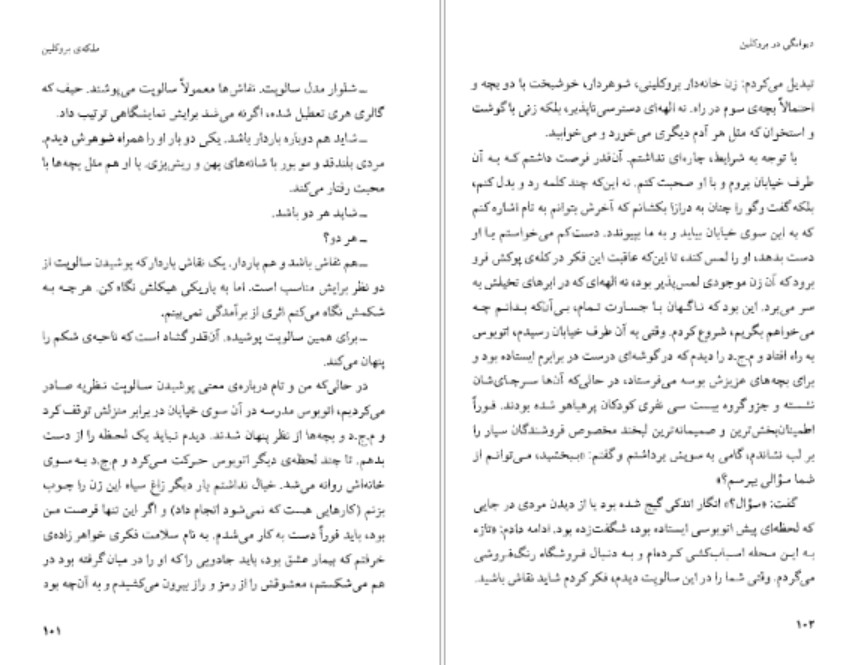 ملکه‌ی بروکلین
ــ شلوار مدل سالوپت. نقاش‌ها معمولاً سالوپت می‌پوشند. حیف که
گالری هری تعطیل شده، اگرنه می‌شد برایش نمایشگاهی ترتیب داد.
ــ شاید هم دوباره باردار باشد. یکی دو بار او را همراه شوهرش دیدم.
مردی بلندقد و مو بور با شانه‌های پهن و ریش‌بزی. با او هم مثل بچه‌ها با
محبت رفتار می‌کند.
ــ شاید هر دو باشد.
ــ هر دو؟
ــ هم نقاش باشد و هم باردار. یک نقاش باردار که پوشیدن سالوپت از
دو نظر برایش مناسب است. اما به باریکی هیکلش نگاه کن. هر چه به
شکمش نگاه می‌کنم اثری از برآمدگی نمی‌بینم.
ــ برای همین سالوپت پوشیده. آن‌قدر گشاد است که ناحیه‌ی شکم را
پنهان می‌کند.
در حالی‌که من و تام درباره‌ی معنی پوشیدن سالوپت نظریه صادر
می‌کردیم، اتوبوس مدرسه در آن سوی خیابان در برابر منزلش توقف کرد
و م.ج.د و بچه‌ها از نظر پنهان شدند. دیدم نباید یک لحظه را از دست
بدهم. تا چند لحظه‌ی دیگر اتوبوس حرکت می‌کرد و م.ج.د به سوی
خانه‌اش روانه می‌شد. خیال نداشتم بار دیگر زاغ سیاه این زن را چوب
بزنم (کارهایی هست که نمی‌شود انجام داد) و اگر این تنها فرصت من
بود، باید فوراً دست به کار می‌شدم. به نام سلامت فکری خواهر زاده‌ی
خرفتم که بیمار عشق بود، باید جادویی را که او را در میان گرفته بود در
هم می‌شکستم، معشوقش را از رمز و راز بیرون می‌کشیدم و به آن‌چه بود
۱۰۱
دیوانگی در بروکلین
تبدیل می‌کردم: زن خانه‌دار بروکلینی، شوهردار، خوشبخت با دو بچه و
احتمالاً بچه‌ی سوم در راه. نه الهه‌ای دسترسی‌ناپذیر، بلکه زنی با گوشت
و استخوان که مثل هر آدم دیگری می‌خورد و می‌خوابید.
با توجه به شرایط، چاره‌ای نداشتم. آن‌قدر فرصت داشتم که به آن
طرف خیابان بروم و با او صحبت کنم. نه این‌که چند کلمه رد و بدل کنم،
بلکه گفت وگو را چنان به درازا بکشانم که آخرش بتوانم به تام اشاره کنم
که به این سوی خیابان بیاید و به ما بپیوندد. دست کم می‌خواستم با او
دست بدهد، او را لمس کند، تا این‌که عاقبت این فکر در کله‌ی پوکش فرو
برود که آن زن موجودی لمس‌پذیر بود، نه الهه‌ای که در ابرهای تخیلش به
سر می‌برد. این بود که ناگهان با جسارت تمام، بی‌آن‌که بدانم چه
می‌خواهم بگویم، شروع کردم. وقتی به آن طرف خیابان رسیدم، اتوبوس
به راه افتاد و م.ج.د را دیدم که در گوشه‌ای درست در برابرم ایستاده بود و
برای بچه‌های عزیزش بوسه می‌فرستاد، در حالی‌که آن‌ها سرجای‌شان
نشسته و جزو گروه بیست سی نفری کودکان پرهیاهو شده بودند. فوراً
اطمینان‌بخش‌ترین و صمیمانه‌ترین لبخند مخصوص فروشندگان سیار را
بر لب نشاندم، گامی به سویش برداشتم و گفتم: «ببخشید، می‌توانم از
شما سؤالی بپرسم؟»
گفت: «سؤال؟» انگار اندکی گیج شده بود یا از دیدن مردی در جایی
که لحظه‌ای پیش اتوبوسی ایستاده بود، شگفت‌زده بود. ادامه دادم: «تازه
به این محله اسباب‌کشی کرده‌ام و به دنبال فروشگاه رنگ‌فروشی
می‌گردم. وقتی شما را در این سالوپت دیدم، فکر کردم شاید نقاش باشید.
۱۰۲